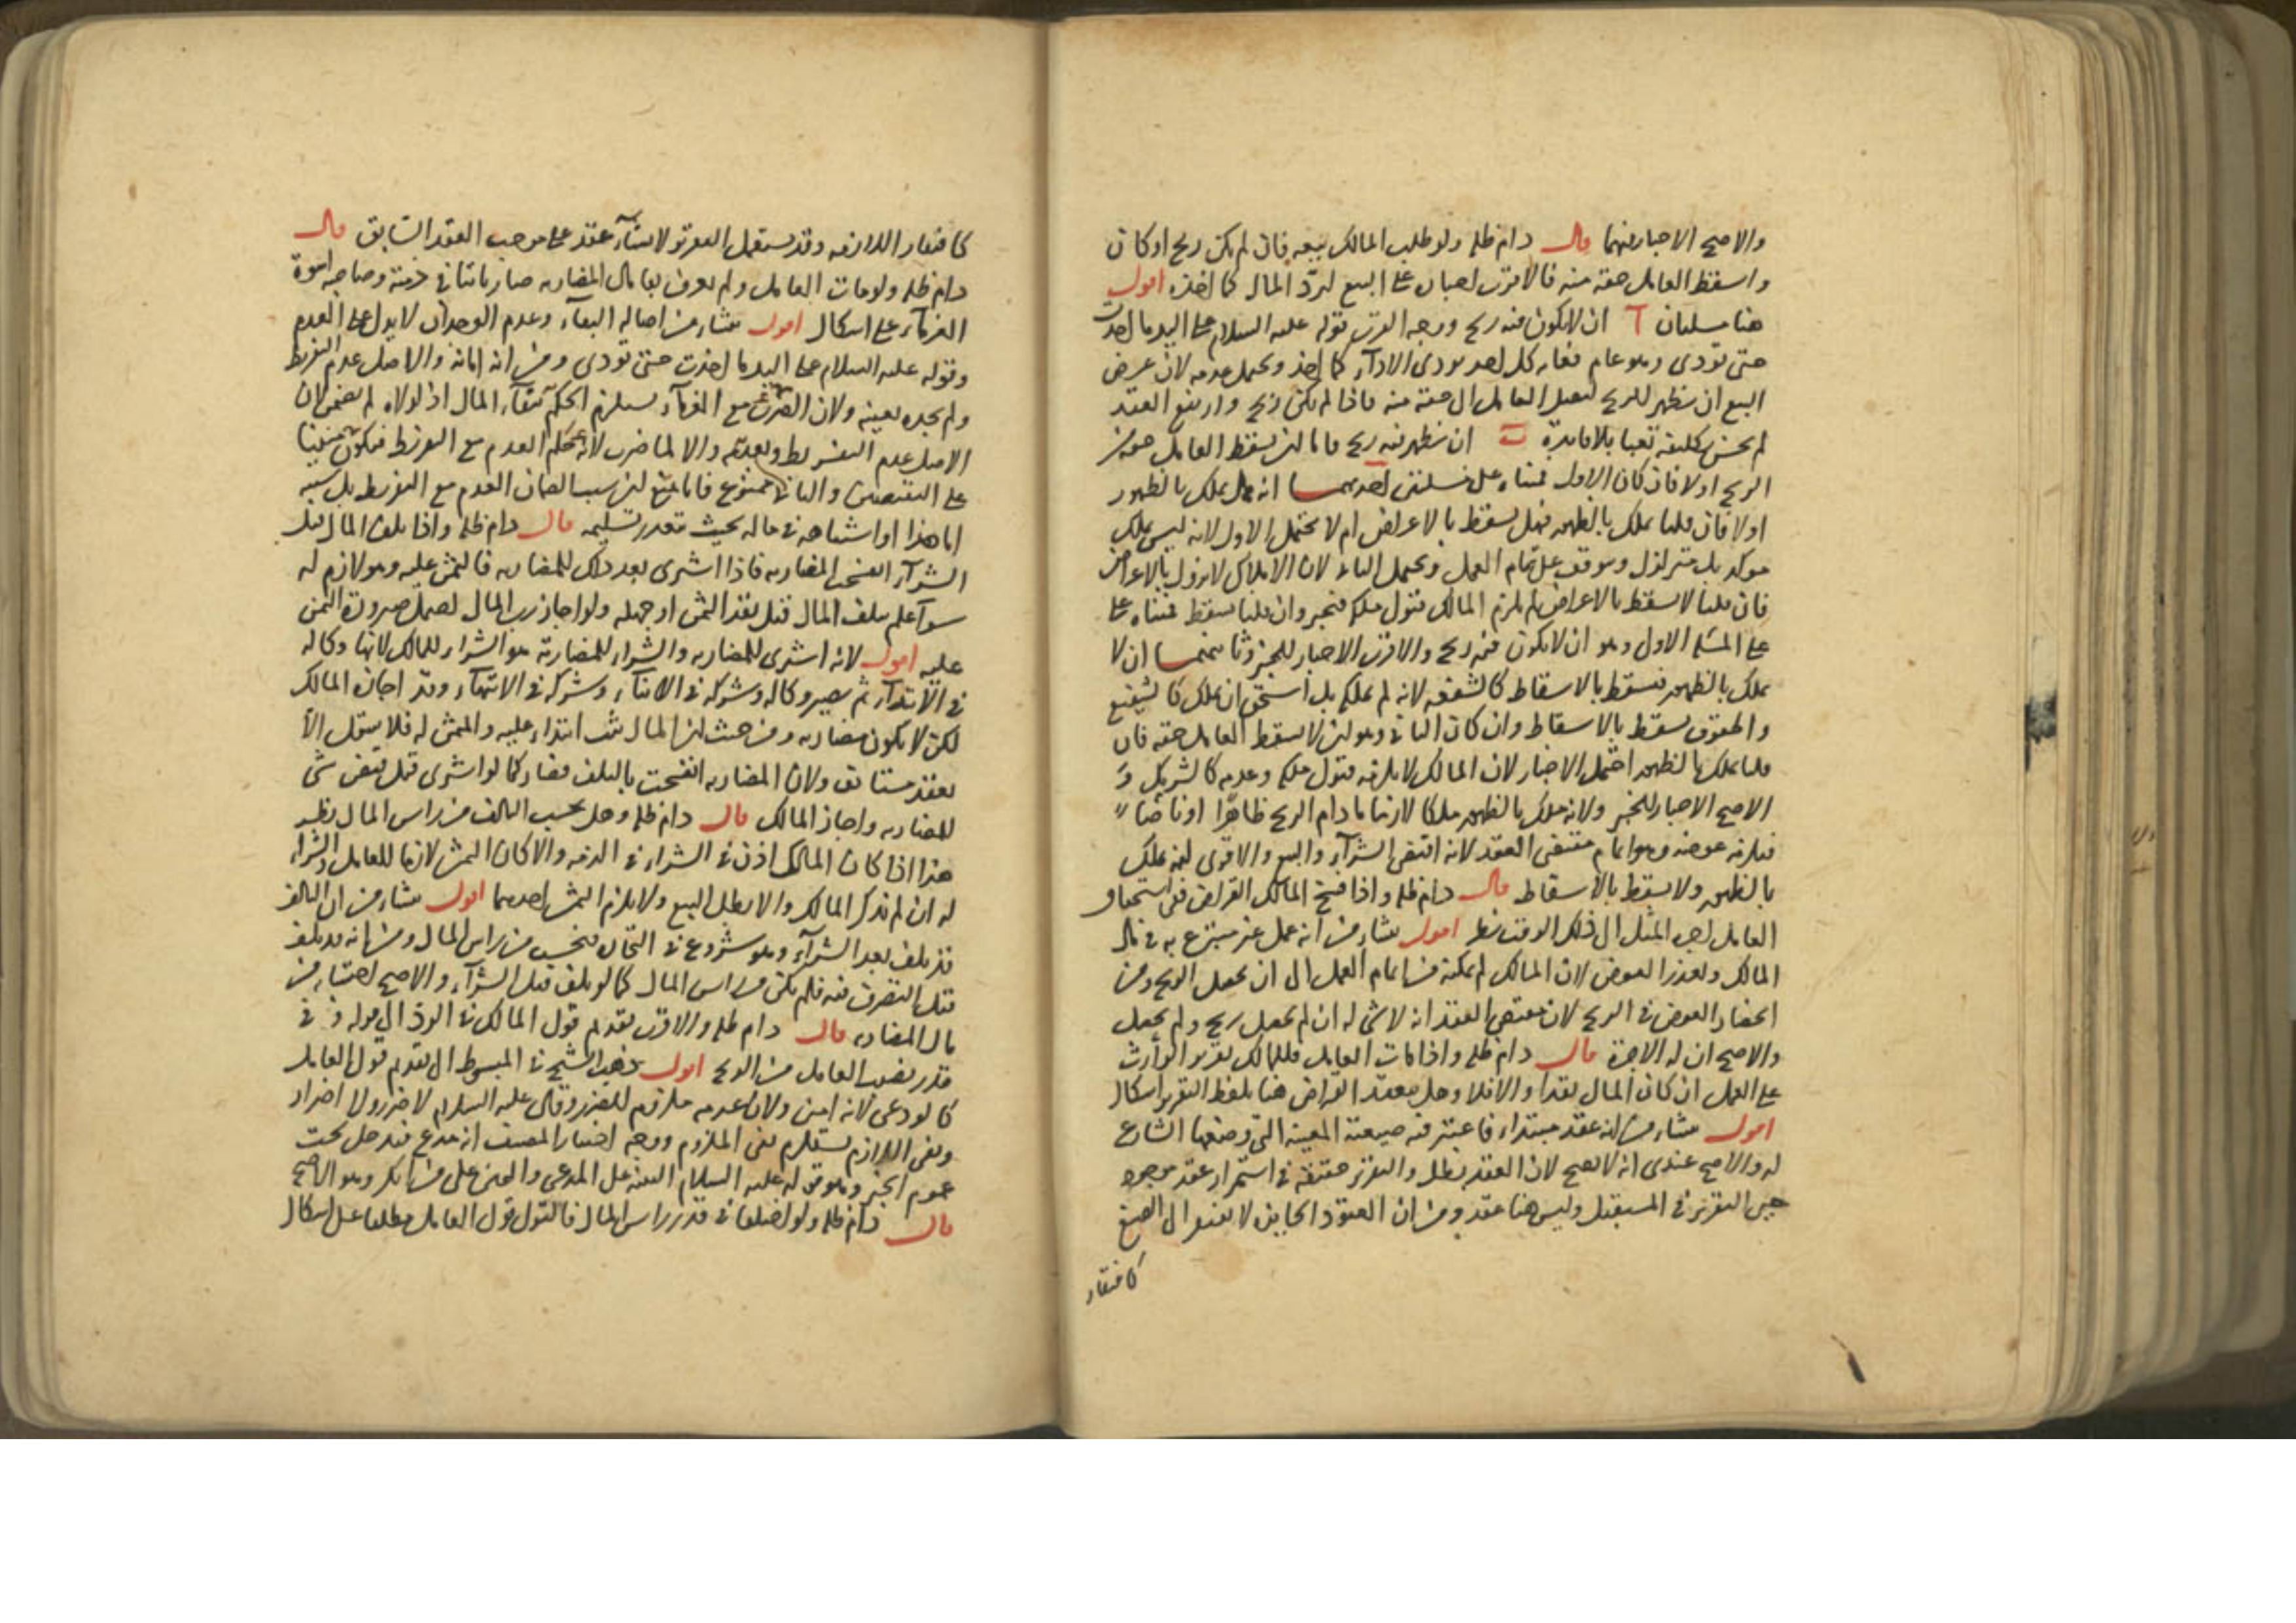 والاصح الاجبار فيهما قال دام ظله ولو طلب المالك بيعه فان لم يكن ربح او كان
واسقط العامل حقه منه فالاقرب اجباره على البيع ليرد المال كما اخذه اقول
هنا مسئلتان آ ان لا يكون فيه ربح ووجه القرب قوله عليه السلام على اليد ما اخذت
حتى تؤدي وهو عام فعلى كل احد يودى الاداء كما اخذ ويحتمل عدمه لان غرض
البيع ان يظهر الربح ليصل العامل الى حقه منه فاذا لم يكن ربح وارتفع العقد
لم يحسن تكليفه تعبا بلا فايدة ب ان يظهر فيه ربح فاما ان يسقط العامل حقه من
الربح اولا فان كان الاول فبناه على مسئلتين احديهما انه هل يملك بالظهور
اولا فان قلنا يملك بالظهور فهل يسقط بالاعراض ام لا يحتمل الاول لانه ليس بملك
موكد بل متزلزل وموقوف على تمام العمل ويحتمل الثانى لان الاملاك لا تزول بالاعراض
فان قلنا لا يسقط بالاعراض لم يلزم المالك قبول ملكه فيجبر وان قلنا يسقط فبناه على
على المسئلة الاول وهو ان لا يكون فيه ربح والاقرب الاجبار للخبر وثانيتهما ان لا
يملك بالظهور فيسقط بالاسقاط كالشفعه لانه لم يملكه بل استحق ان يملك كالشفيع
والحقوق يسقط بالاسقاط وان كان الثانى وهو ان لا يسقط العامل حقه فان
قلنا يملك بالظهور احتمل الاجبار لان المالك لا يلزمه قبول ملكه وعدمه كالشريك و
الاصح الاجبار للخبر ولانه ملك بالظهور ملكا لازما ما دام الربح ظاهرا او ناضا
فيلزمه عوضه وهو اتمام مقتضى العقد لانه اقتضى الشراء والبيع والاقوى انه يملك
بالظهور ولا يسقط بالاسقاط قال دام ظله واذا فسخ المالك القراض ففى استحقاق
العامل اجر المثل الى ذلك الوقت نظر اقول ينشاء من انه عمل غير متبرع به في مال
المالك وتعذر العوض لان المالك لم يمكنه من اتمام العمل الى ان يحصل الربح ومن
انحصار العوض في الربح لان مقتضى العقد انه لا شى له ان لم يحصل ربح ولم يحصل
والاصح ان له الاجرة قال دام ظله واذا مات العامل فللمالك تقرير الوارث
على العمل ان كان المال نقدا والا فلا وهل ينعقد القراض هنا بلفظ التقرير اشكال
اقول ينشاء من انه عقد مبتداء فاعتبر فيه صيغته المعينة التى وضعها الشارع
له والاصح عندى انه لا يصح لان العقد بطل والتقرير حقيقة في استمرار عقد موجود
حين التقرير في المستقبل وليس هنا عقد ومن ان العقود الجايزه لا تفتقر الى الصيغ
كافتقار
كافتقار اللازمه وقد يستعمل التقرير لانشاء عقد على موجب العقد السابق قال
دام ظله ولو مات العامل ولم يعرف بقا مال المضاربه صار ثابتا في ذمته وصاحبه اسوة
الغرماء على اشكال اقول ينشاء من اصالة البقاء وعدم الوجدان لا يدل على العدم
وقوله عليه السلام على اليد ما اخذت حتى تؤدى ومن انه امانه والاصل عدم التفريط
ولم يجده بعينه ولان الضرب مع الغرماء يستلزم الحكم ببقاء المال اذ لولاه لم يضمن لان
الاصل عدم التفريط وبعدمه والا لما ضرب لانه حكم العدم مع التفريط فيكون مبنيا
على النقيضين والثانى ممنوع فانا نمنع ان سبب الضمان العدم مع التفريط بل سببه
اما هذا او اشتباهه في ماله بحيث تعذر تسليمه قال دام ظله واذا تلف المال قبل
الشراء انفسخت المضاربه فاذا اشترى بعد ذلك للمضاربه فالثمن عليه وهو لازم له
سواء علم بتلف المال قبل نقد الثمن او جهله ولو اجاز رب المال احتمل صيرورة الثمن
عليه اقول لانه اشترى للمضاربه والشراء للمضاربة هو الشراء للمالك لانها وكاله
في الابتداء ثم تصير وكاله وشركه في الاثناء وشركه في الانتهاء وقد اجازه المالك
لكن لا يكون مضاربه ومن حيث ان المال ثبت ابتداء عليه والثمن له فلا ينتقل الا
بعقد مستانف ولان المضاربه انفسخت بالتلف فصار كما لو اشترى قبل قبض شى
للمضاربه واجاز المالك قال دام ظله وهل يحسب التالف من راس المال نظر
هذا اذا كان المالك اذن في الشراء في الذمه والا كان الثمن لازما للعامل والشراء
له ان لم يذكر المالك والا بطل البيع ولا يلزم الثمن احدهما اقول ينشاء من ان التالف
قد تلف بعد الشراء وهو شروع في التجاره فيحسب من راس المال ومن انه قد تلف
قبل التصرف فيه فلم يكن من راس المال كما لو تلف قبل الشراء والاصح احتسابه من
مال المضاربه قال دام ظله والاقرب تقديم قول المالك في الرد الى قوله وفى
قدر نصيب العامل من الربح اقول ذهب الشيخ في المبسوط الى تقديم قول العامل
كالودعى لانه امين ولان عدمه ملزوم للضرر وقال عليه السلام لا ضرر ولا اضرار
ونفى اللازم يستلزم نفى الملزوم ووجه اختيار المصنف انه مدع فيدخل تحت
عموم الخبر وهو قوله عليه السلام البينه على المدعى واليمين على من انكر وهو الاصح
قال دام ظله ولو اختلفا في قدر راس المال فالقول قول العامل مطلقا على اشكال